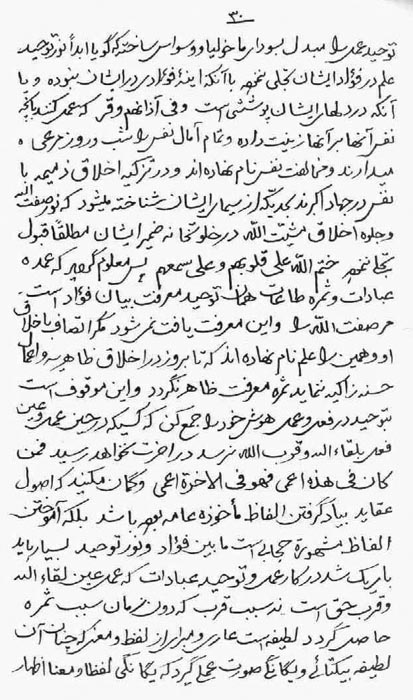 ۳۰
توحید عملی را مبدل بسودای ماخولیا و وسواس ساخته که گویا ابدا نور توحید
علم در فؤاد ایشان تجلی ننموده با آنکه اینهٔ فؤادی در ایشان نبوده و با
آنکه در دلهای ایشان پوششی است و فی آذانهم وقر که عمل کنند بآنچه
نفس آنها بر آنها زینت داده و تمام آمال نفس را شب و روز مرعی
میدارند و مخالفت نفس نام نهاده اند و در تزکیه اخلاق ذمیمه با
نفس در جهاد اکبرند بحدیکه از سیمای ایشان شناخته میشود که نور صفت الله
و جلوه اخلاق مشیت الله در خلوتخانه ضمیر ایشان مطلقا قبول
تجلی ننموده ختم الله علی قلوبهم و علی سمعهم پس معلوم گردید که عمده
عبادات و ثمره طاعات همان توحید معرفت بیان فؤاد است
مر صفت الله را و این معرفت یافت نمی شود مگر اتصاف باخلاق
او و همین را علم نام نهاده اند که تا بروز در اخلاق ظاهریه و اعمال
حسنه زاکیه ننماید ثمره معرفت ظاهر نگردد و این موقوف است
بتوحید در فعل و عمل هوش خود را جمع کن که کسیکه در حین عمل و عین
فعل بلقاء الله و قرب الله نرسد در اخرت نخواهد رسید فمن
کان فی هذه اعمی فهو فی الاخرة اعمی و گمان مکنید که اصول
عقاید بیاد گرفتن الفاظ مأخوذه عامه بوده باشد بلکه آموختن
الفاظ مشهوره حجابی است ما بین فؤاد و نور توحید بسیار باید
باریک شد در کار عمل و توحید عبادات که عمل عین لقاء الله
و قرب حق است نه سبب قرب که دون زمان سبب ثمره
حاصل گردد لطیفه است عاری و مبرا از لفظ و معنی که چنان آن
لطیفه بیکتائی و یگانگی صورت عمل گیرد که یگانگی لفظ و معنا اظهار